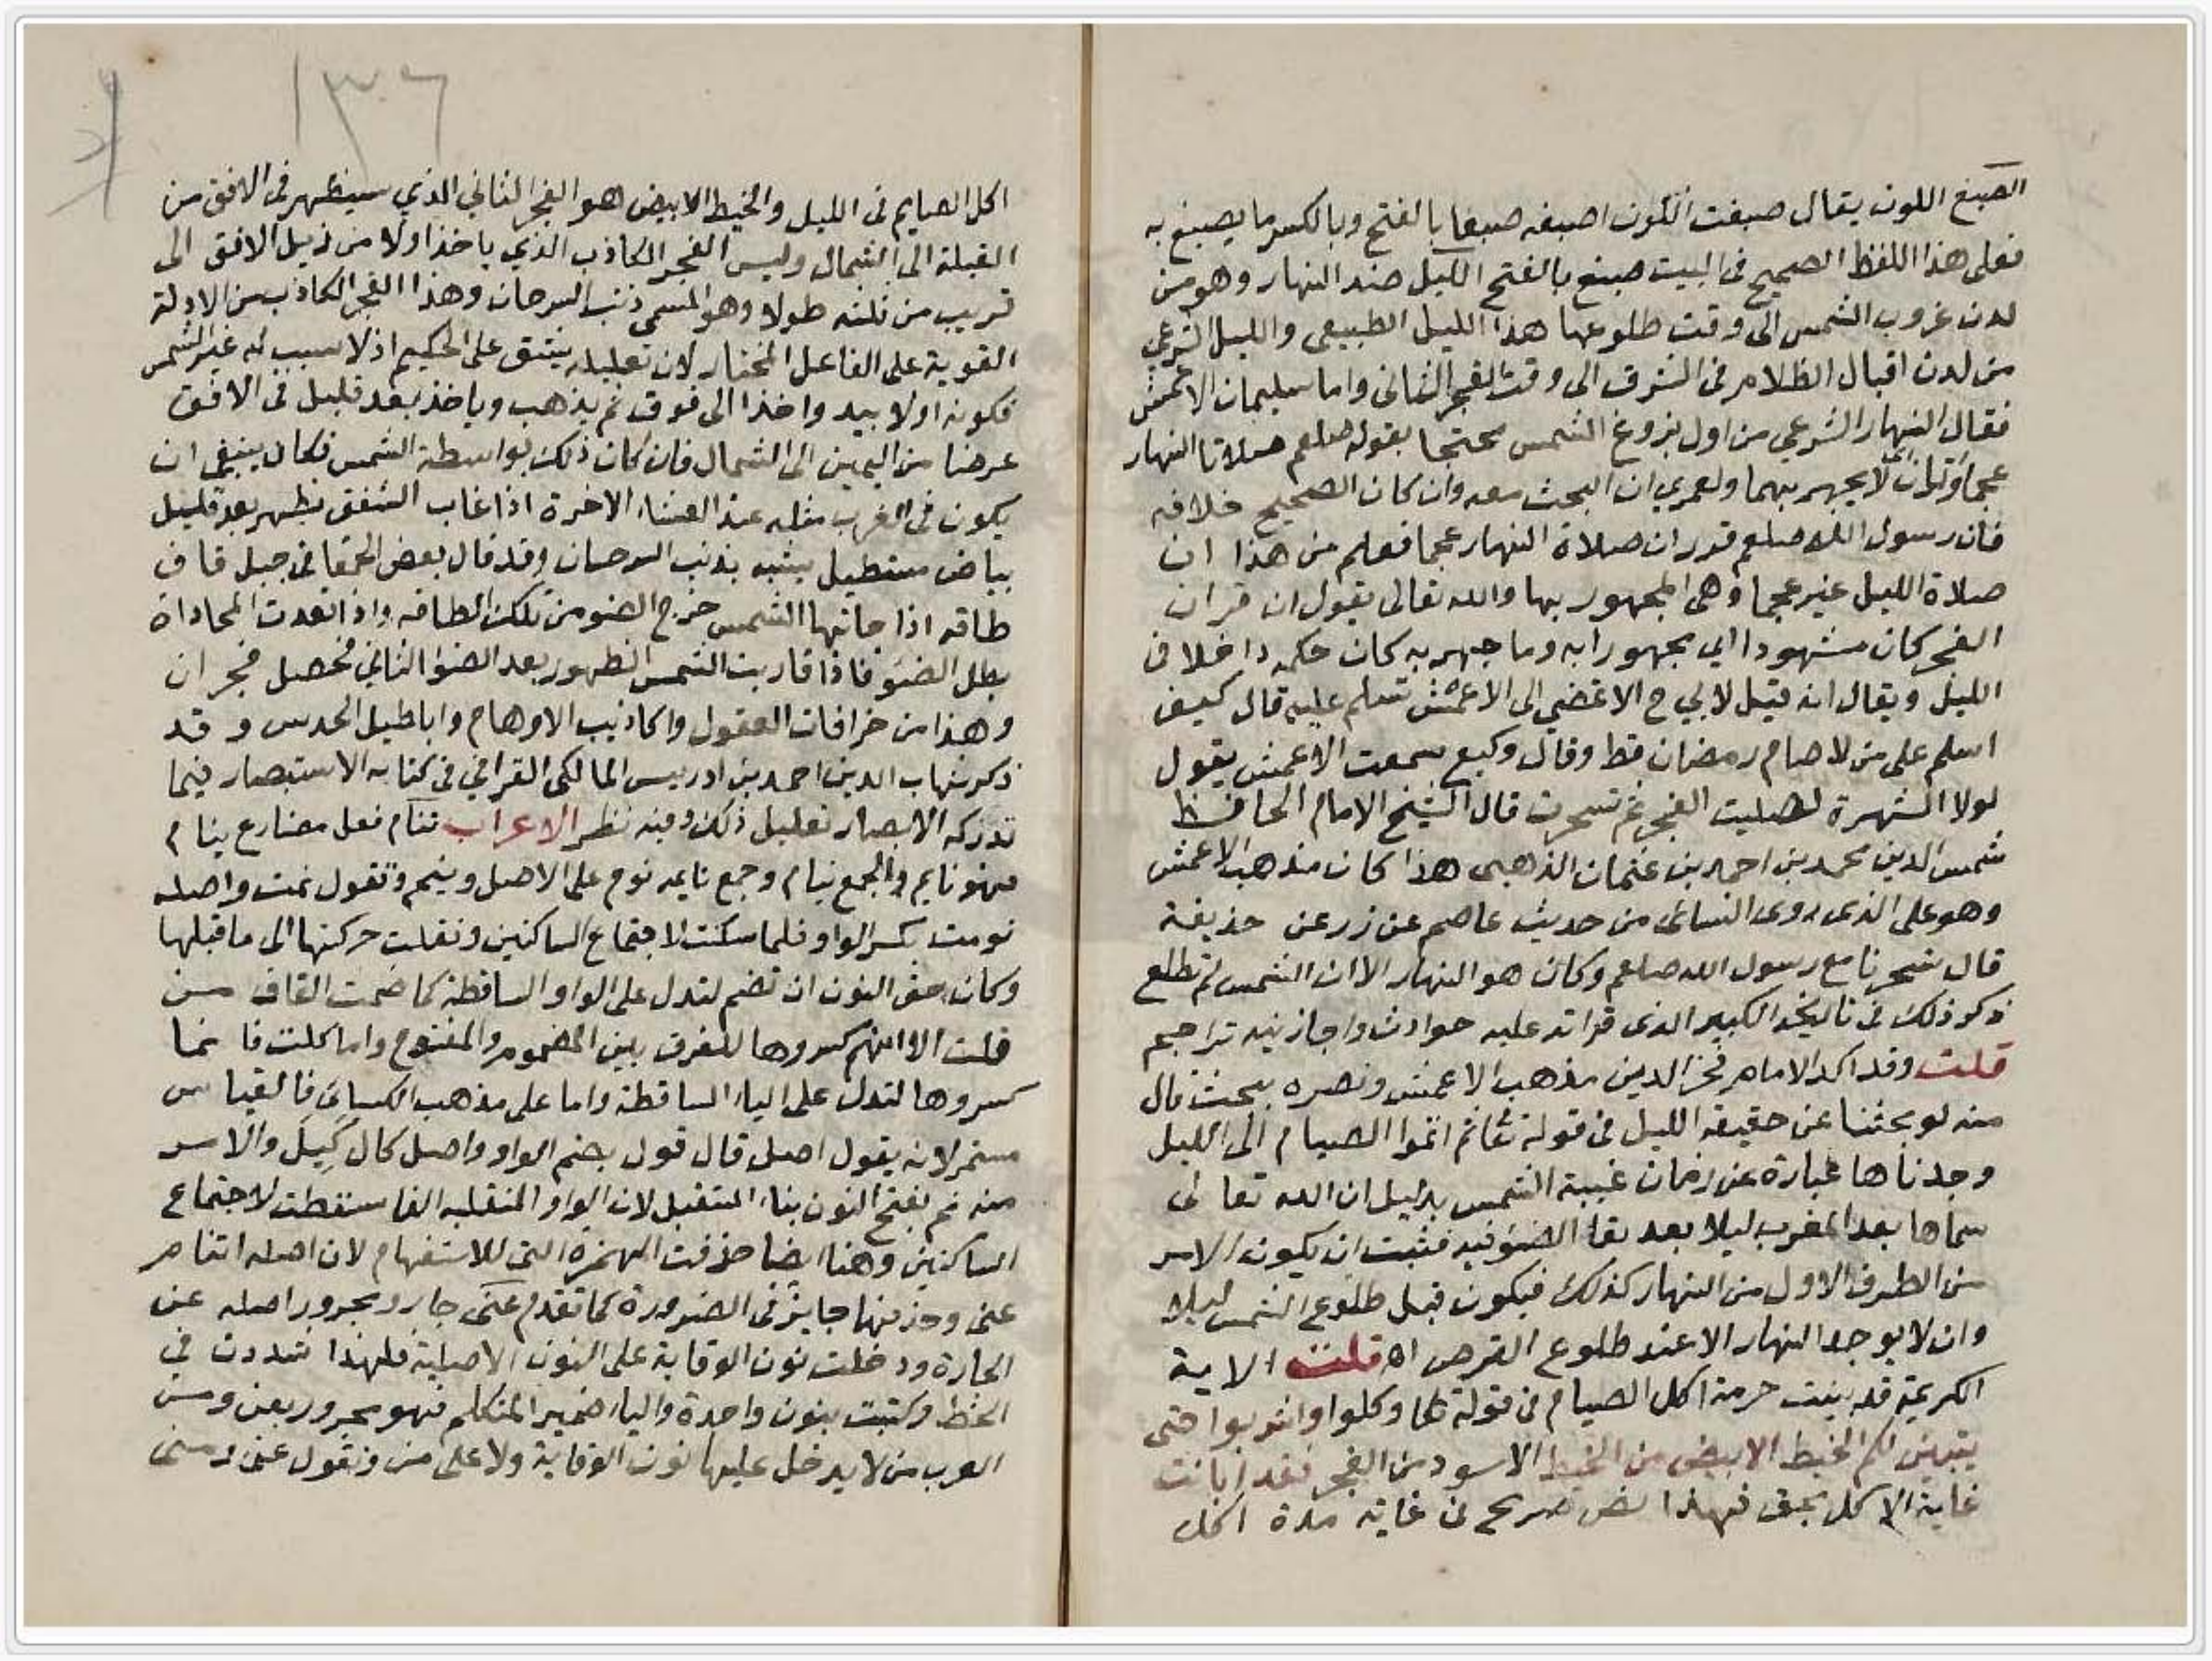 الصبغ اللون يقال صبغت اللون اصبغه صبغا بالفتح وبالكسر ما يصبغ به
فعلى هذا اللفظ الصحيح فى البيت صبغ بالفتح الليل ضد النهار وهو من
لدن غروب الشمس الى وقت طلوعها هذا الليل الطبيعى والليل الشرعي
من لدن اقبال الظلام فى الشرق الى وقت الفجر الثانى واما سليمان الاعمش
فقال النهار الشرعي من اول بزوغ الشمس محتجا بقوله صلعم صلاتا النهار
عجماوتان لا يجهر بهما ولعمري ان البحث معه وان كان الصحيح خلافه
فان رسول الله صلعم قرر ان صلاة النهار عجما فعلم من هذا ان
صلاة الليل غير عجما وهى المجهور بها والله تعالى يقول ان قران
الفجر كان مشهودا اي مجهورا به وما جهر به كان حكمه داخلا فى
الليل ويقال انه قيل لابي ح الا تمضي الى الاعمش تسلم عليه قال كيف
اسلم على من لا صام رمضان قط وقال وكيع سمعت الاعمش يقول
لولا الشهرة لصليت الفجر ثم تسحرت قال الشيخ الامام الحافظ
شمس الدين محمد بن احمد بن عثمان الذهبى هذا كان مذهب الاعمش
وهو على الذى روى النسائى من حديث عاصم عن زر عن حذيفة
قال تسحرنا مع رسول الله صلعم وكان هو النهار الا ان الشمس لم تطلع
ذكر ذلك فى تاريخه الكبير الذى قراته عليه حوادث واجازنيه تراجم
قلت وقد اكد الامام فخر الدين مذهب الاعمش ونصره ببحث قال
منه لو بحثنا عن حقيقة الليل فى قوله تعا ثم اتموا الصيام الى الليل
وجدناها عبارة عن زمان غيبة الشمس بدليل ان الله تعالى
سماها بعد المغرب ليلا بعد بقا الضوء فيه فثبت ان يكون الامر
من الطرف الاول من النهار كذلك فيكون قبل طلوع الشمس ليلا
وان لا يوجد النهار الا عند طلوع القرص اه قلت الاية
الكريمة قد بينت حرمة اكل الصيام فى قوله تعا وكلوا واشربوا حتى
يتبين لكم الخيط الابيض من الخيط الاسود من الفجر فقد ابانت
غاية الاكل بحق فهذا نص صريح فى غاية مدة اكل
١٣٦
اكل الصايم فى الليل والخيط الابيض هو الفجر الثاني الذي سيظهر فى الافق من
القبلة الى الشمال وليس الفجر الكاذب الذي ياخذ اولا من ذيل الافق الى
قريب من ثلثه طولا وهو المسمى ذنب السرحان وهذا الفجر الكاذب من الادلة
القوية على الفاعل المختار لان تعليله يشق على الحكيم اذ لا سبب له غير الشمس
فكونه اولا يبد واخذا الى فوق ثم يذهب وياخذ بعد قليل فى الافق
عرضا من اليمين الى الشمال فان كان ذلك بواسطة الشمس فكان ينبغي ان
يكون فى الغرب مثله عند العشاء الاخرة اذا غاب الشفق يظهر بعد قليل
بياض مستطيل يشبه بذنب السرحان وقد قال بعض الحمقا فى جبل قاف
طاقه اذا حاذتها الشمس خرج الضو من تلك الطاقه واذا تعدت المحاداة
بطل الضوء فاذا قاربت الشمس الظهور بعد الضو الثاني فحصل فجر ان
وهذا من خرافات العقول واكاذيب الاوهام واباطيل الحدس وقد
ذكر شهاب الدين احمد بن ادريس المالكى القرافي فى كتابه الاستبصار فيما
تدركه الابصار تعليل ذلك وفيه نظر الاعراب تنام فعل مضارع ينام
فهو نايم والجمع نيام وجمع نايمه نوم على الاصل ونيم وتقول نمت واصله
نومت بكسر الواو فلما سكنت لاجتماع الساكنين ونقلت حركتها الى ما قبلها
وكان حق النون ان تضم لتدل على الواو الساقطة كما ضمت القاف من
قلت الا انهم كسروها للفرق بين المضموم والمفتوح واما كلت فانما
كسروها لتدل على الياء الساقطة واما على مذهب الكسائى فالقياس
مستمر لانه يقول اصل قال قول بضم الواو واصل كال كيل والامر
منه نم بفتح النون بناء المستقبل لان الواو المنقلبه الفا سقطت لاجتماع
الساكنين وهنا ايضا حذفت الهمزة التى للاستفهام لان اصله اتنام
عنى وحذفها جايز فى الضرورة كما تقدم عنى جار ومجرور اصله عن
الجارة ودخلت نون الوقاية على النون الاصلية فلهذا شددت فى
الخط وكتبت بنون واحدة والياء ضمير المتكلم فهو مجرور بعن ومن
العرب من لا يدخل عليها نون الوقاية ولا على من وتقول عنى ومنى